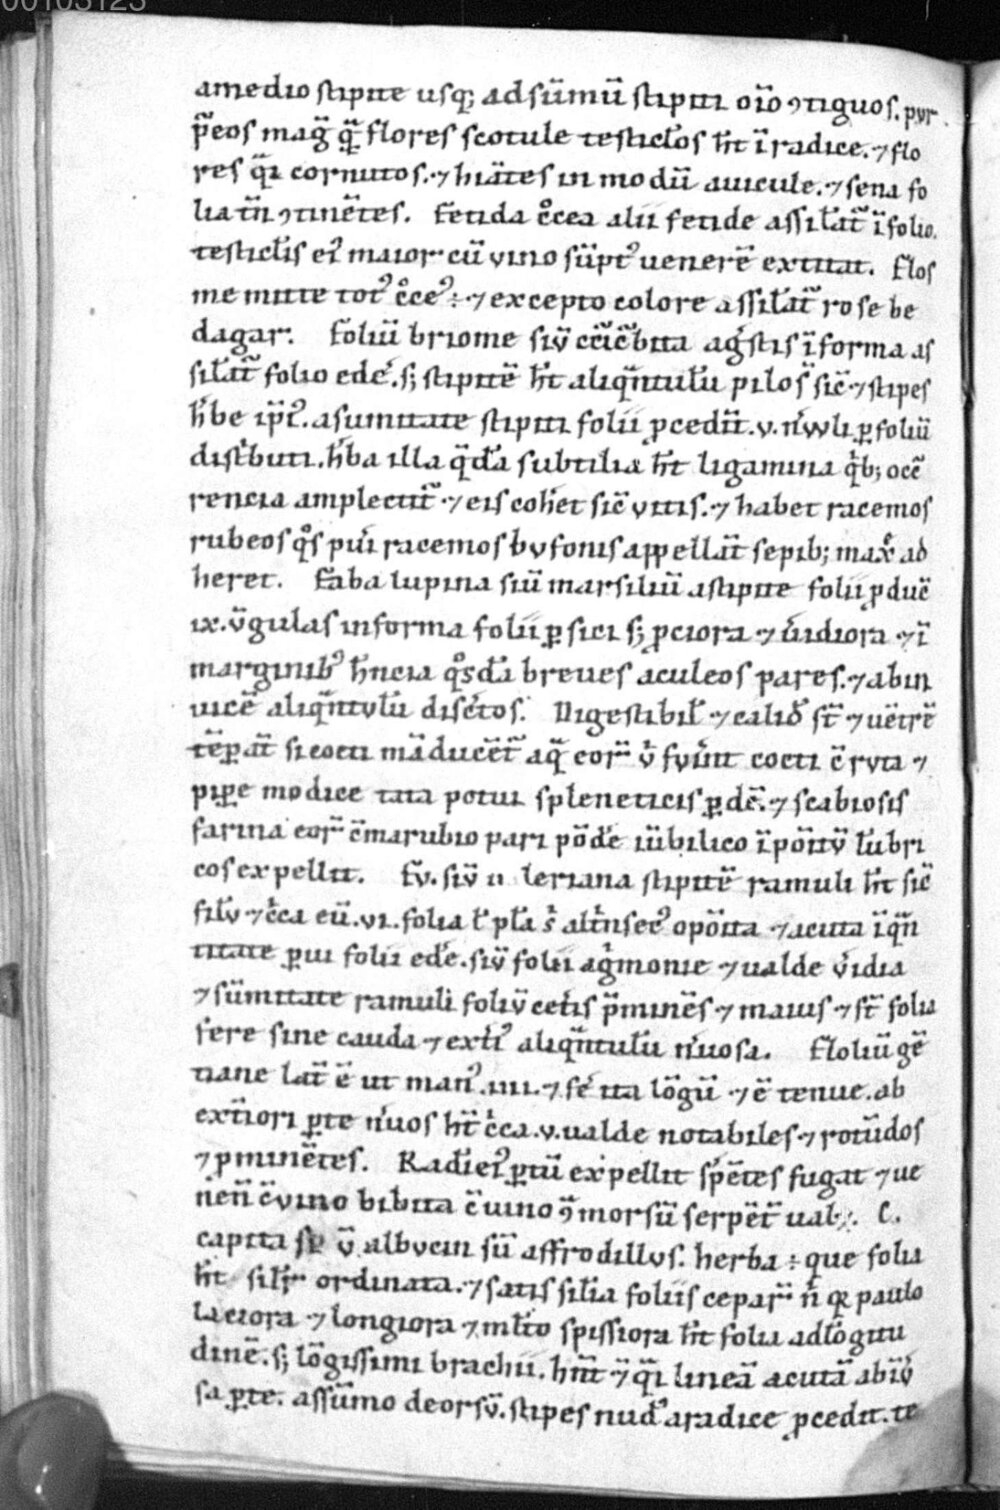 00103123
amedio stipite usq; ad sūmū stipiti oīo ꝯtiguos. pyr
p̄eos mag̃ q̄ flores scotule testicl̃os h̄t ī radice. ⁊ flo
res q̄i cornutos. ⁊ hiātes in modū auicule. ⁊ sena fo
lia tm̄ ꝯtinētes. Fetida c̊cea alii fetide assil̃at̃ ī folio.
testicl̃is ei᾿ maior cū vino sūpt᾿ uenerē extitat. Flos
me mitte tot᾿ c̊ce᾿ : ⁊ excepto colore assil̃at̃ rose be
dagar. Foliū briome siv̄ agr̃stis ī forma as
sil̃at̃ folio eder̃. s; stipitē h̄t aliqn̄tul̃u pilos̃ sic̄ ⁊ stipes
h̃be ip̄i᾿. asumitate stipiti folii ꝓcedūt. v. ꝑ foliū
distͥbuti. h̃ba illa q̄dã subtilia h̄t ligamina qͥb; ocē
rencia amplectūt̃ ⁊ eis coh̃et sic̄ vitis. ⁊ habet racemos
rubeos qͦs pũi racemos bufonis appellāt sepib; max̊ ad
heret. Faba lupina siū marsiliū astipite folii ꝓduc̄
ix. v̄gulas in forma folii ꝑsici s; ꝓciora ⁊ uͥidiora ⁊ ī
marginib᾿ h̄ncia qͦsdã breves aculeos pares. ⁊ abin
uicē aliqn̄tulũ disc̃tos. Digestibil̃ ⁊ calid̃ st̄ ⁊ uētrē
tēꝑāt si cocti māducēt̃ aq̄ eor̄ v̓ fuͥint cocti c̄ ruta ⁊
piꝑe modice tata potui spleneticis ꝑdē. ⁊ scabiosis
farina eor̄ c̄ marubio pari pōdẽ iūbilico īpōitv̄ lũbri
cos expellit. Fv̄. siv̄ leriana stipitē ramuli h̄t sic̄
fil̃v ⁊ cͥca eū. vi. folia l̃ pl̃a s̃ altͥnsec᾿ opōita ⁊ acuta ī qn̄
titate ꝑui folii edẽ. siv̄ folii agͥmonie ⁊ ualde vͥidia
⁊ sūmitate ramuli foliv̄ cetͥis p̄minēs ⁊ maius ⁊ st̄ folia
fere sine cauda ⁊ extͥ᾿ aliqn̄tul̃u n̓uosa. Floliū gē
tiane lat̄ ē ut man᾿. iiii. ⁊ fe᾿ ita lōgū ⁊ ē tenue. ab
extͥiori ꝑte n̓uos h̄t cͥca. v. ualde notabiles ⁊ rotūdos
⁊ pminētes. Radi᾿ei᾿ ꝑtū expellit spētes fugat ⁊ ue
nen̄ c̄ vino bibita c̄ uino ꝯ̄ morsū serpēt̄ ual;. C.
capita v̄ albucin siī affrodillvs. herba ÷ que folia
h̄t sil̃r ordinata. ⁊ satis sil̃ia foliis cepar̄ n̓ qr paulo
laciora ⁊ longiora ⁊ ml̃to spissiora h̄t folia ad lōgitu
dinē. s; lōgissimi brachii. hn̄t ⁊ q̄i lineā acutā abīv᾿
sa ꝑte. assūmo deorsv̄. stipes nud᾿ aradice ꝓcedit. te